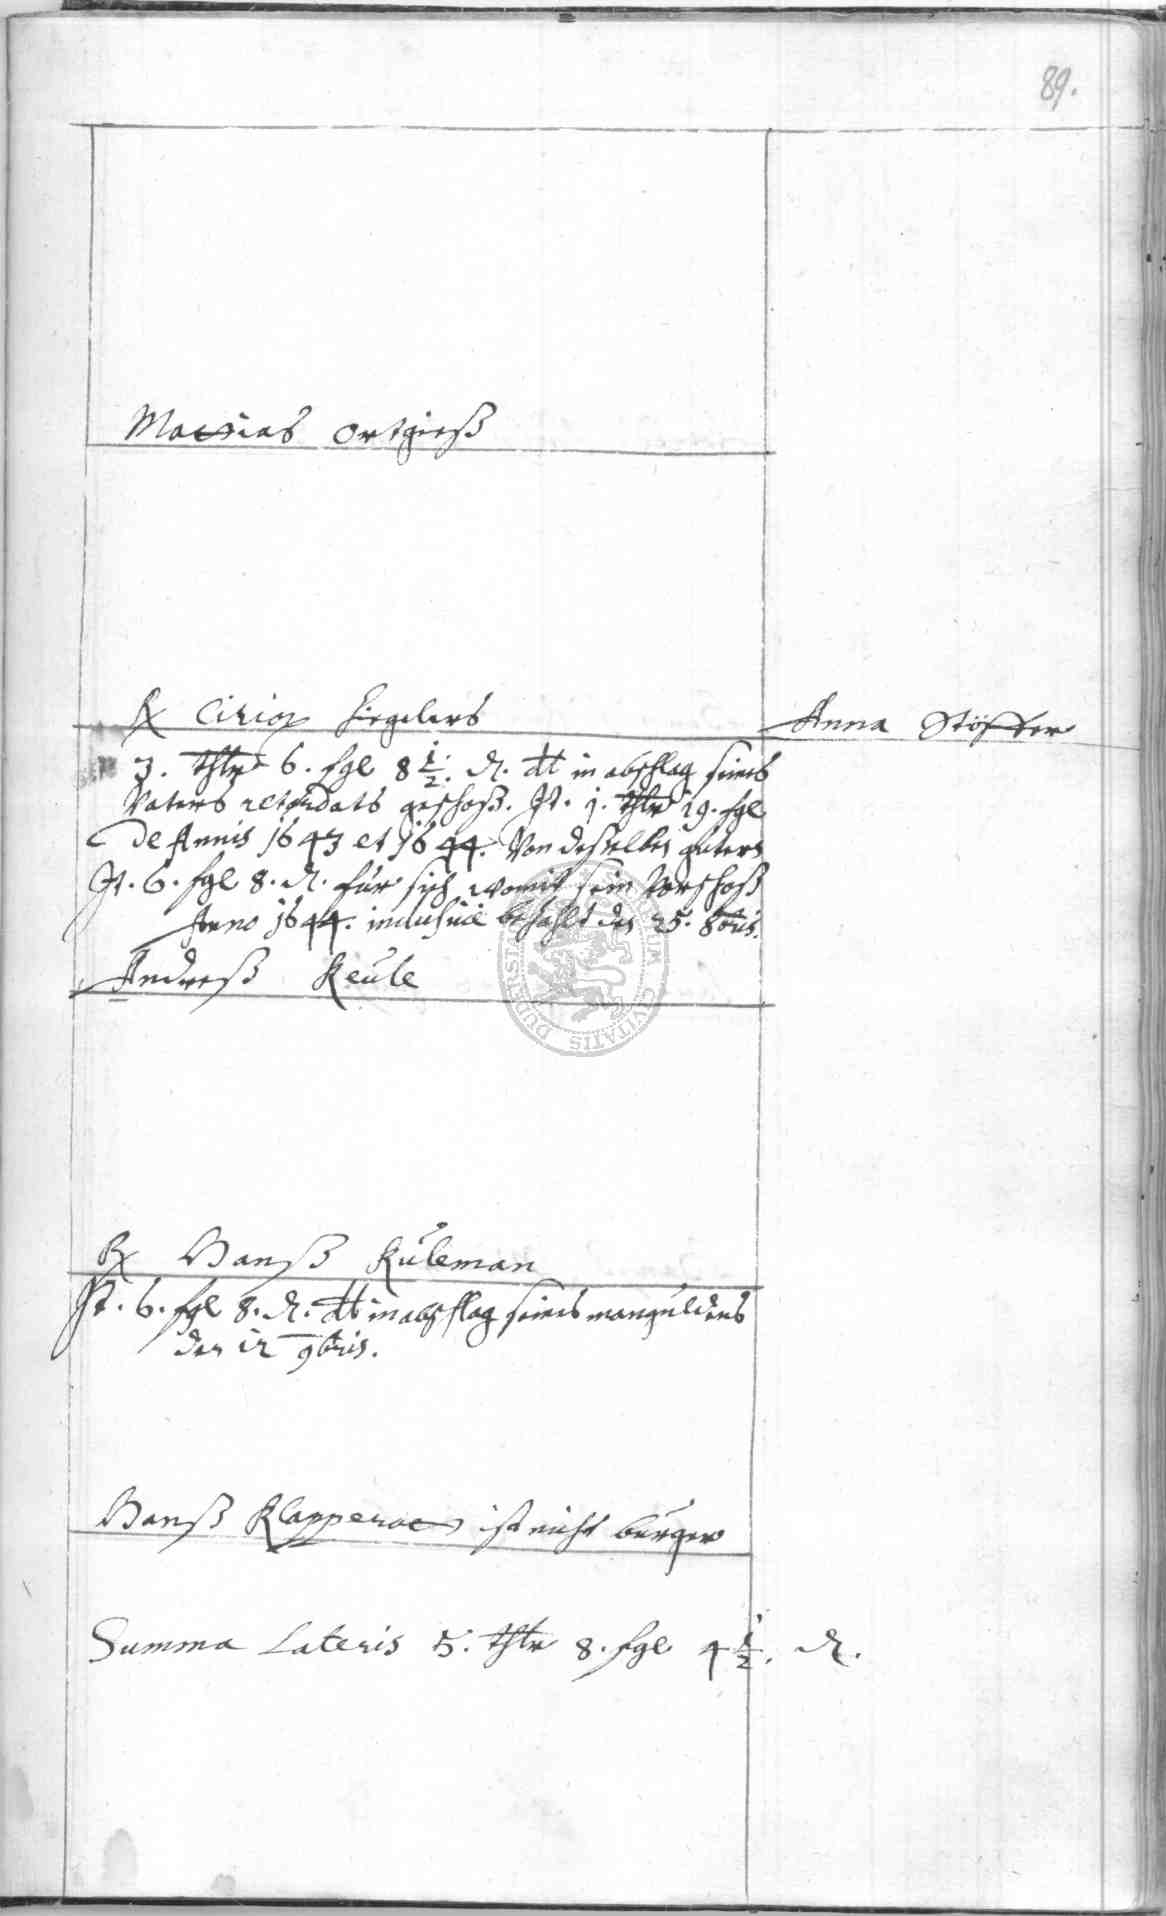 89.
Matias Ortgieß
Rx Ciriox Ziegelers
Anna Stöffter
3. thlr 6. fgl 8½. ₰. dt in abschlag seines
Vaters retardats geschoß. It. 1. thlr 19. fgl
De Annis 1643 et 1644. Von deßelben gütern
It. 6. fgl 8. ₰. für sich womit sein Vorschoß
Anno 1644. inclusiue bezahlt den 25. 8bris.
Andreß Keule
Rx Hanß Kuleman
It. 6. fgl 8. ₰. dt in abschlag seines manguldens
den 12 9bris.
Hanß Klapperot ist nicht bürger
Summa Lateris 5. thlr 8. fgl 4½. ₰.
CIVITATIS